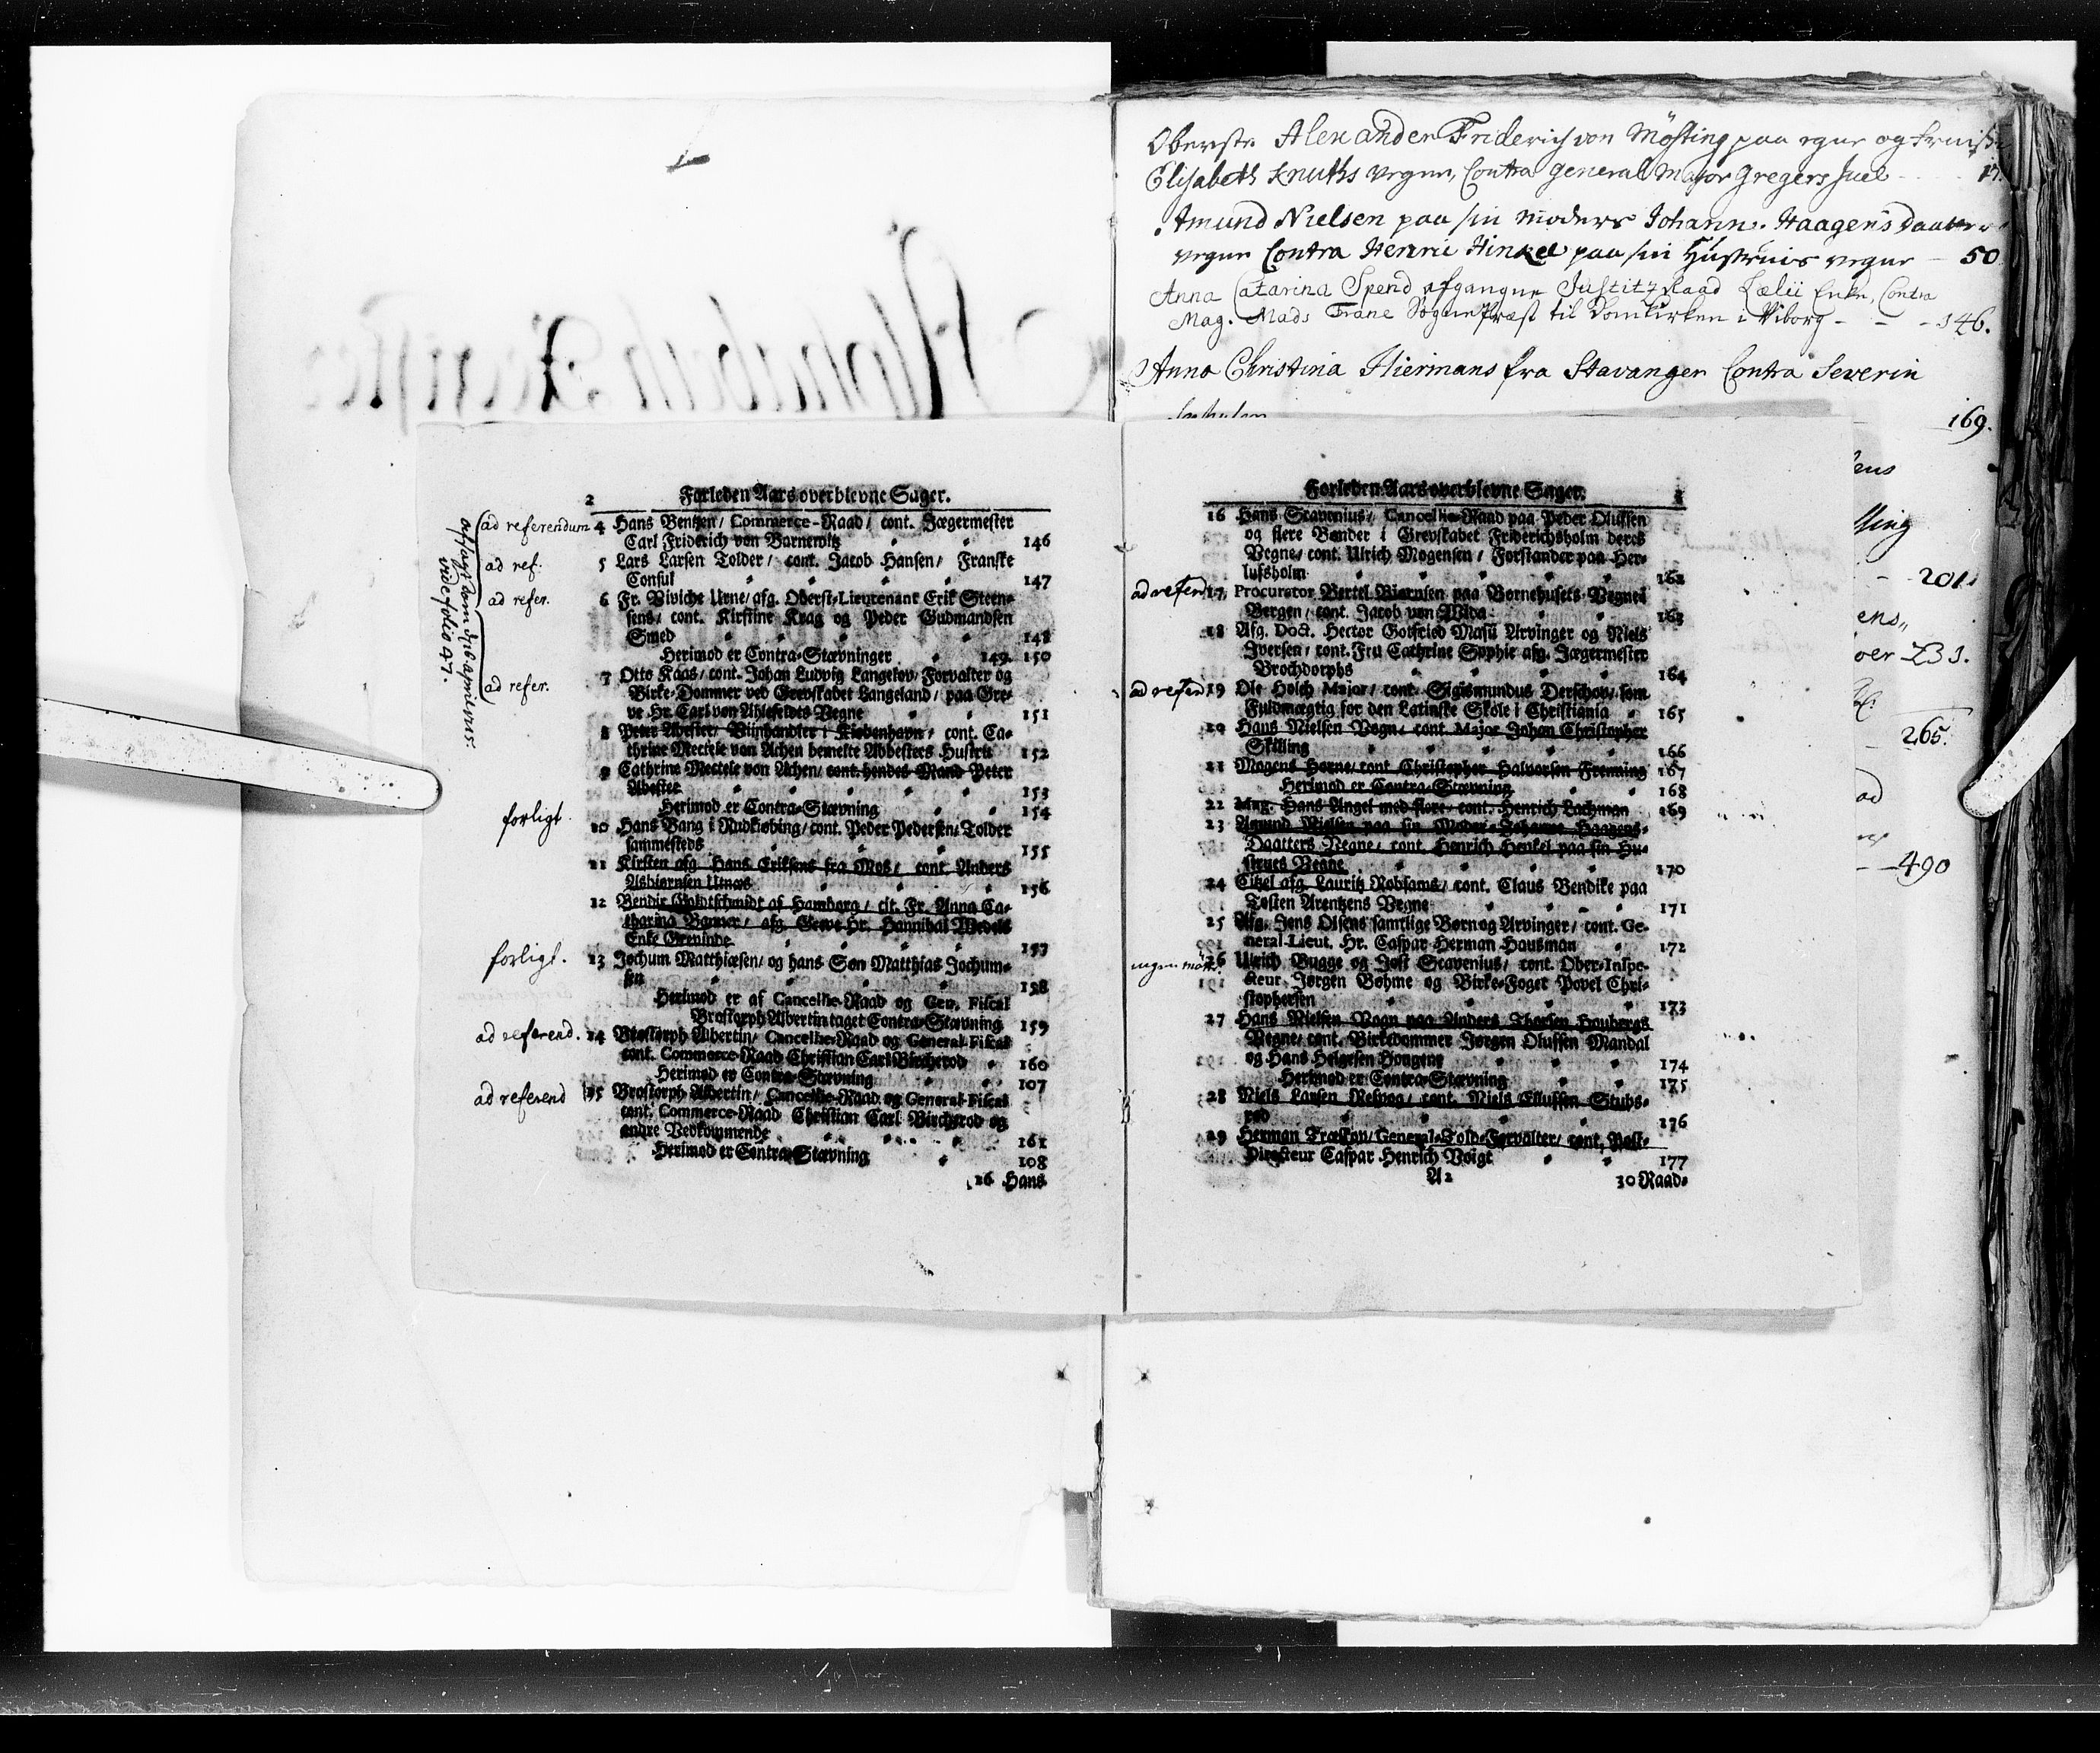 Oberste Alexander Friderich von Møsting paa egne og Fruis
Elisabeth Knuths vegne, Contra General Major Gregers Juel - - - 17.
Amund Nielsen paa sin Moders Johann. Haagens Daatters
vegne Contra Henric Hinkel paa sin Hustruis vegne - 50
Anna Catarina Spend afgangne Justitz Raad Lælii Enke, Contra
Mag. Mads Trane Sogne Præst til Domkirken i Viborg - - - 146.
Anna Christina Hiermans fra Stavanger Contra Severin
169.
ens
lling
- 201.
ens,,
oer 233.
265.
ad
- 490
2 Forleden Aars overblevne Sager.
ad referendum 4 Hans Bentzen/ Commerce-Raad/ cont. Jægermester
Carl Friderich von Barnewitz 146
ad ref. 5 Lars Larsen Tolder/ cont. Jacob Hansen/ Franske
Consul 147
ad refer. 6 Fr. Viviche Urne/ afg. Oberst-Lieutenant Erik Steen-
sens/ cont. Kirstine Krag og Peder Gudmandsen
Smed 148
Herimod er Contra-Stævninger 149. 150
ad refer. 7 Otto Kaas/ cont. Johan Ludvig Langekov/ Forvalter og
Birke-Dommer ved Grevskabet Langeland/ paa Gre-
ve Hr. Carl von Ahlefeldts Vegne 151
8 Peter Abester/ Viinhandler i Kiøbenhavn/ cont. Ca-
thrine Mectele von Achen bemelte Abbesters Hustru 152
9 Cathrine Mectele von Achen/ cont. hendes Mand Peter
Abester 153
Herimod er Contra-Stævning 154
forligt. 10 Hans Bang i Rudkiøbing/ cont. Peder Pedersen/ Tolder
sammesteds 155
11 Kirsten afg. Hans Eriksens fra Mos/ cont. Anders
Asbiørnsen Utnæs 156
12 Bendix Goldtschmidt af Hamborg/ cit. Fr. Anna Ca-
tharina Banner/ afg. Greve Hr. Hannibal Wedels
Enke Grevinde 157
forligt. 13 Jochum Matthiæsen/ og hans Søn Matthias Jochum-
sen 158
Herimod er af Cancellie-Raad og Gen. Fiscal
Brostorph Albertin taget Contra-Stævning 159
ad referend. 14 Brostorph Albertin/ Cancellie-Raad og General-Fiscal
cont. Commerce-Raad Christian Carl Bircherod 160
Herimod er Contra-Stævning 107
ad referend 15 Brostorph Albertin/ Cancellie-Raad og General-Fiscal
cont. Commerce-Raad Christian Carl Bircherod og
andre Vedkommende 161
Herimod er Contra-Stævning 108
16 Hans
vide folio 47.
Forleden Aars overblevne Sager.
16 Hans Scavenius/ Cancellie-Raad paa Peder Olufsen
og flere Bønder i Grevskabet Friderichsholm deres
Vegne/ cont. Ulrich Mogensen/ Forstander paa Her-
lufsholm 162
ad refer 17 Procurator Bertel Biørnsen paa Børnehusets Vegne i
Bergen/ cont. Jacob von Wida 163
18 Afg. Doct. Hector Gotfried Masii Arvinger og Niels
Iversen/ cont. Fru Cathrine Sophie afg. Jægermester
Brochdorphs 164
ad refer 19 Ole Holch Major/ cont. Sigismundus Derschov/ som
Fuldmægtig for den Latinske Skole i Christiania 165
20 Hans Nielsen Vogn/ cont. Major Johan Christopher
Skilling 166
21 Mogens Horne/ cont Christopher Halvorsen Frenning 167
Herimod er Contra-Stævning 168
22 Mag. Hans Angel med flere/ cont. Henrich Lachman 169
23 Amund Nielsen paa sin Moder Johanne Haagens-
Daatters Vegne/ cont. Henrich Henkel paa sin Hu-
strues Vegne 170
24 Citzel afg. Lauritz Robsams/ cont. Claus Bendike paa
Tosten Arentzens Vegne 171
25 Afg. Jens Olsens samtlige Børn og Arvinger/ cont. Ge-
neral-Lieut. Hr. Caspar Herman Hausman 172
ingen mødt. 26 Ulrich Bugge og Jost Scavenius/ cont. Ober-Inspe-
cteur Jørgen Bohme og Birke-Foget Povel Chri-
stophersen 173
27 Hans Nielsen Vogn paa Anders Thorsen Houbergs
Vegne/ cont. Birkedommer Jørgen Olufsen Mandal
og Hans Helgesen Hougene 174
Herimod er Contra-Stævning 175
28 Niels Larsen Relvog/ cont. Niels Ellufsen Stubs-
rød 176
29 Herman Træskou/ General-Told-Forvalter/ cont. Post-
Directeur Caspar Henrich Voigt 177
A2 30 Raad-